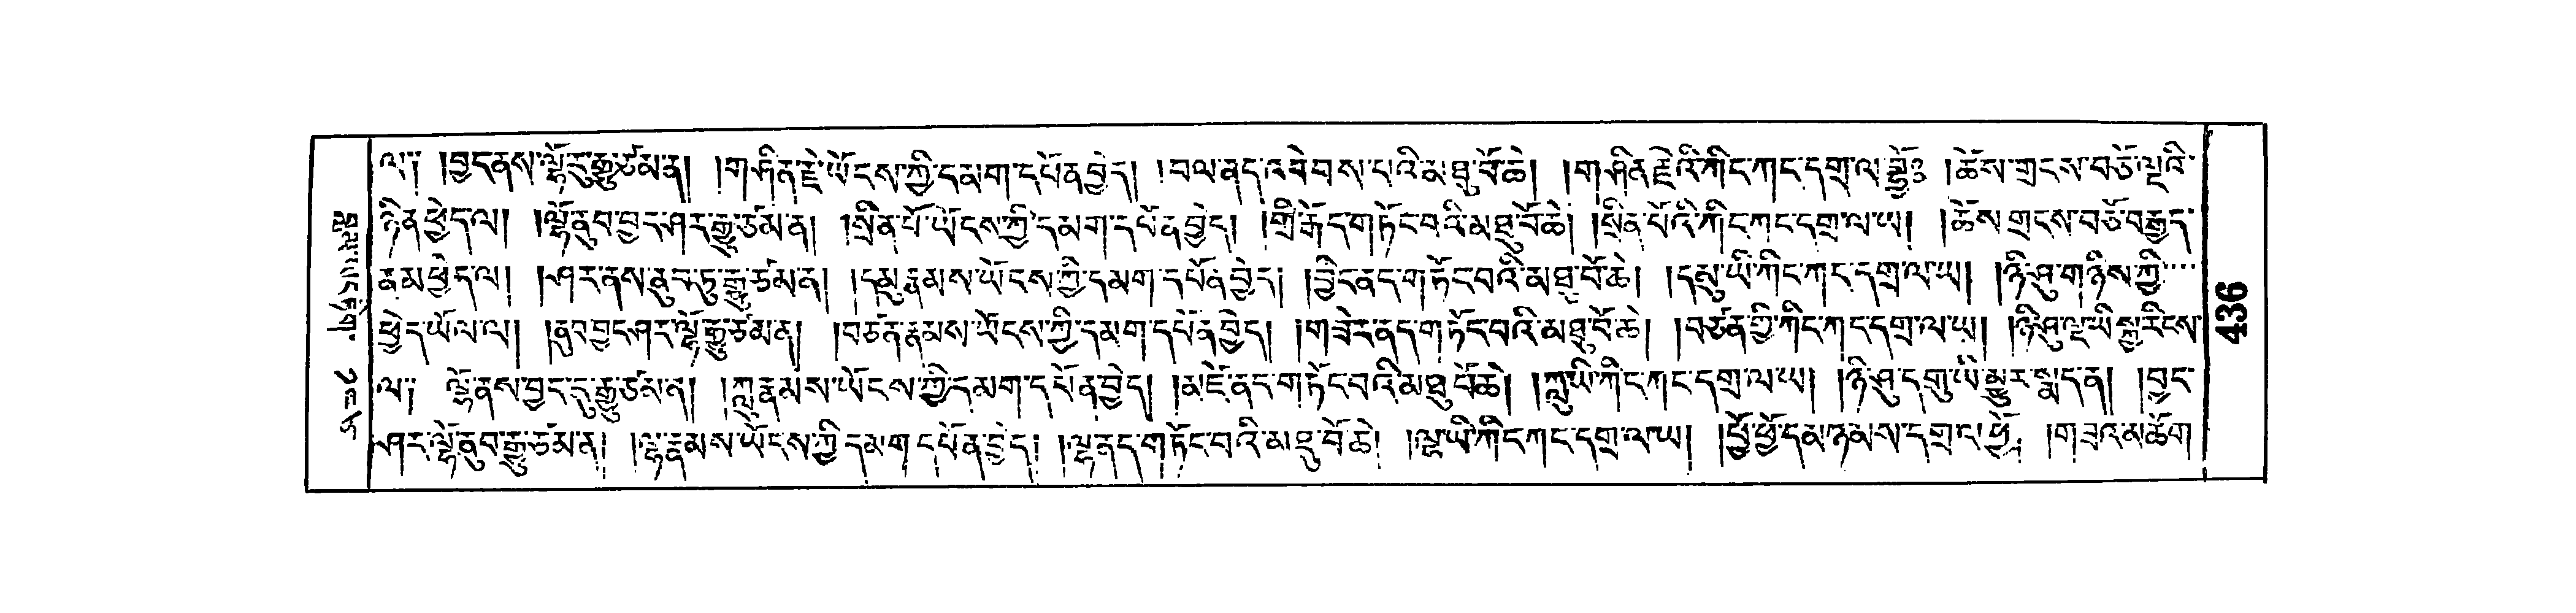 ལ༑ །བྱང་ནས་ལྷོ་རུ་རྒྱུ་ཙམ་ན། །གཤིན་རྗེ་ཡོངས་ཀྱི་དམག་དཔོན་བྱེད། །བལ་ནད་འབེབས་པའི་མཐུ་བོ་ཆེ། །གཤིན་རྗེའི་ཀིང་ཀང་དགྲ་ལ་ །ཚེས་གྲངས་བཅོ་ལྔའི་
ཉིན་ཕྱེད་ལ། །ལྷོ་ནུབ་བྱང་ཤར་རྒྱུ་ཙམ་ན། །སྲིན་པོ་ཡོངས་ཀྱི་དམག་དཔོན་བྱེད། །གྲི་རྒོད་གཏོང་བའི་མཐུ་བོ་ཆེ། །སྲིན་པོའི་ཀིང་ཀང་དགྲ་ལ་ཡ། །ཚེས་གྲངས་བཅོ་བརྒྱད་
ནམ་ཕྱེད་ལ། །ཤར་ནས་ནུབ་ཏུ་རྒྱུ་ཙམ་ན། །དམུ་རྣམས་ཡོངས་ཀྱི་དམག་དཔོན་བྱེད། །བྱིང་ནད་གཏོང་བའི་མཐུ་བོ་ཆེ། །དམུ་ཡི་ཀིང་ཀང་དགྲ་ལ་ཡ། །ཉི་ཤུ་གཉིས་ཀྱི་
ཕྱེད་ཡོལ་ལ། །ནུབ་བྱང་ཤར་ལྷོ་རྒྱུ་ཙམ་ན། །བཙན་རྣམས་ཡོངས་ཀྱི་དམག་དཔོན་བྱེད། །གཟེར་ནད་གཏོང་བའི་མཐུ་བོ་ཆེ། །བཙན་གྱི་ཀིང་ཀང་དགྲ་ལ་ཡ། །ཉི་ཤུ་ལྔ་ཡི་སྐྱ་རེངས་
ལ༑ ལྷོ་ནས་བྱང་དུ་རྒྱུ་ཙམ་ན། །ཀླུ་རྣམས་ཡོངས་ཀྱི་དམག་དཔོན་བྱེད། །མཛེ་ནད་གཏོང་བའི་མཐུ་བོ་ཆེ། །ཀླུ་ཡི་ཀིང་ཀང་དགྲ་ལ་ཡ། །ཉི་ཤུ་དགུ་ཡི་མྱུར་སྨད་ན། །བྱང་
ཤར་ལྷོ་ནུབ་རྒྱུ་ཙམ་ན། །ལྷ་རྣམས་ཡོངས་ཀྱི་དམག་དཔོན་བྱེད། །ལྷ་ནད་གཏོང་བའི་མཐུ་བོ་ཆེ། །ལྷ་ཡི་ཀིང་ཀང་དགྲ་ལ་ཡ། །ཕྱོ་ཕྱོ་དམ་ཉམས་དགྲ་ལ་ཕྱོ། །གཟའ་མཆོག
436